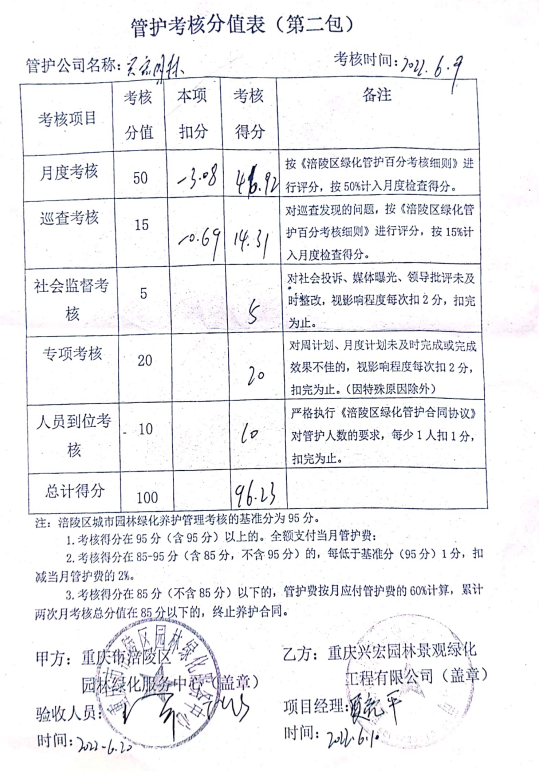 管护考核分值表（第二包）
管护公司名称：兴宏园林 考核时间：2022.6.9
考核项目 考核分值 本项扣分 考核得分 备注
月度考核 50 -3.08 46.92 按《涪陵区绿化管护百分考核细则》进
行评分，按50%计入月度检查得分。
巡查考核 15 -0.69 14.31 对巡查发现的问题，按《涪陵区绿化管
护百分考核细则》进行评分，按15%计
入月度检查得分。
社会监督考核 5 5 对社会投诉、媒体曝光、领导批评未及
时整改，视影响程度每次扣2分，扣完
为止。
专项考核 20 20 对周计划、月度计划未及时完成或完成
效果不佳的，视影响程度每次扣2分，
扣完为止。（因特殊原因除外）
人员到位考核 10 10 严格执行《涪陵区绿化管护合同协议》
对管护人数的要求，每少1人扣1分，
扣完为止。
总计得分 100 96.23
注：涪陵区城市园林绿化养护管理考核的基准分为95分。
1.考核得分在95分（含95分）以上的。全额支付当月管护费；
2.考核得分在85-95分（含85分，不含95分）的，每低于基准分（95分）1分，扣
减当月管护费的2%。
3.考核得分在85分（不含85分）以下的，管护费按月应付管护费的60%计算，累计
两次月考核总分值在85分以下的，终止养护合同。
甲方：重庆市涪陵区 乙方：重庆兴宏园林景观绿化
园林绿化服务中心（盖章） 工程有限公司（盖章）
验收人员： 项目经理：
时间：2022-6.20 时间：2022.6.10